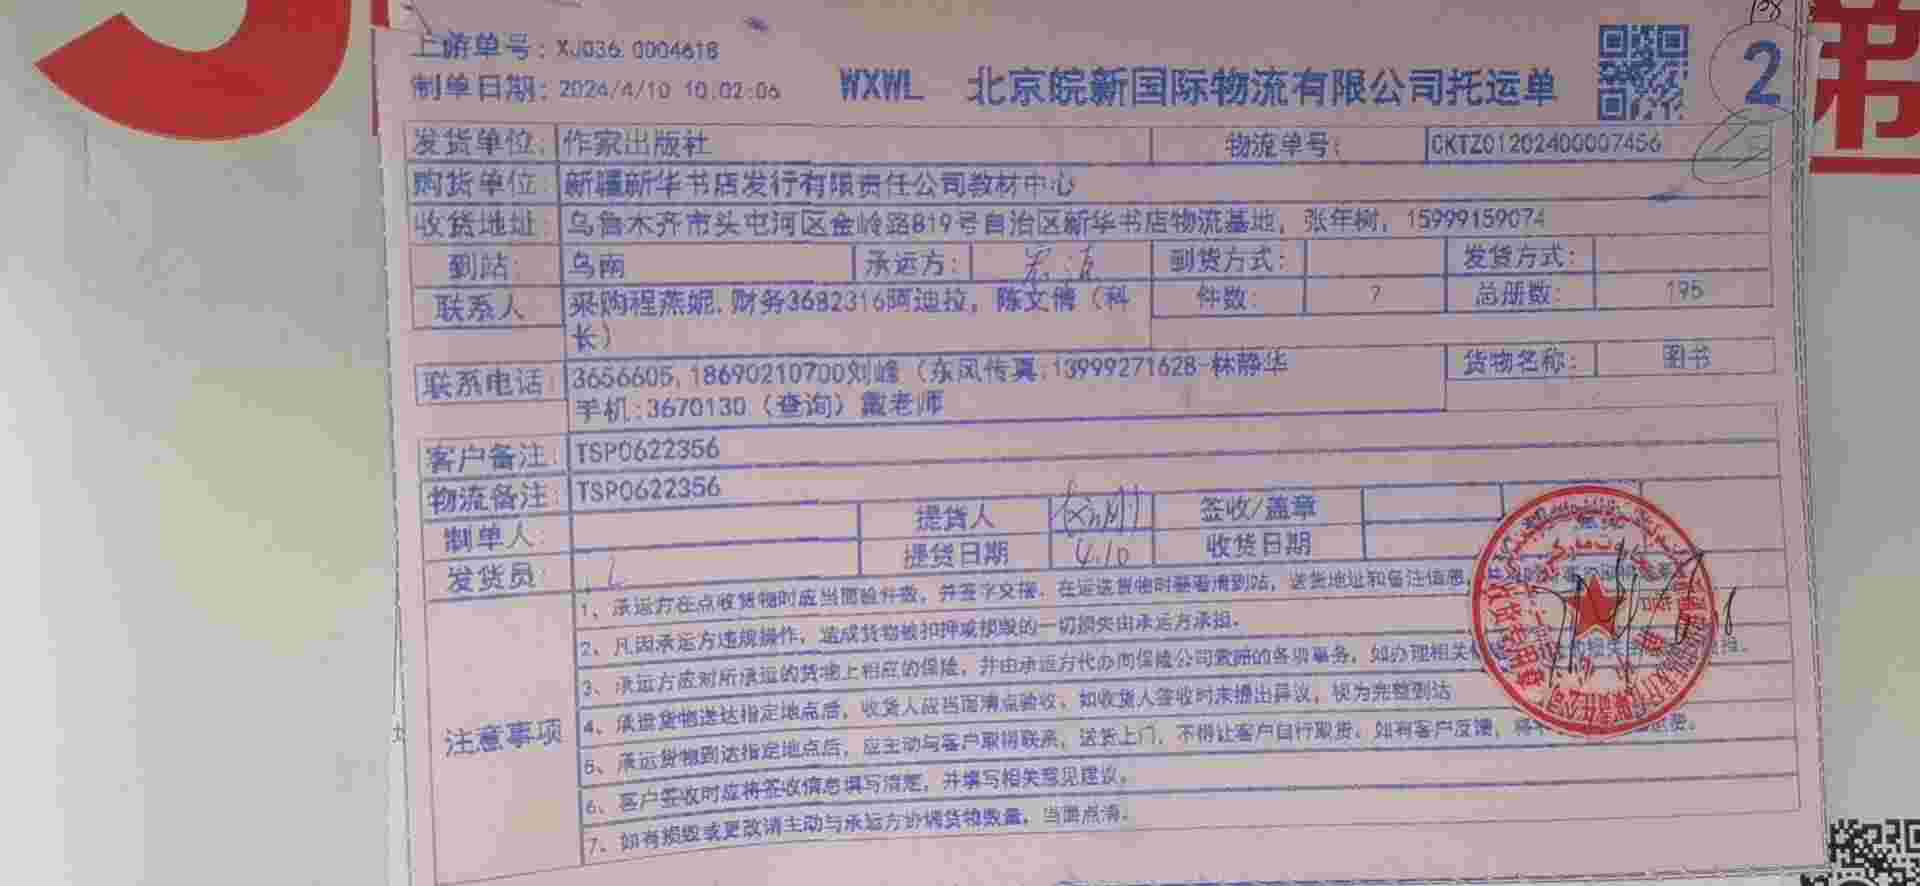 上游单号: XJ036 0004618
制单日期: 2024/4/10 10:02:06
WXWL 北京皖新国际物流有限公司托运单
2
发货单位: 作家出版社 物流单号: CKTZ01202400007456
购货单位: 新疆新华书店发行有限责任公司教材中心
收货地址: 乌鲁木齐市头屯河区金岭路819号自治区新华书店物流基地, 张年树, 15999159074
到站: 乌南 承运方: 到货方式: 发货方式:
联系人 采购程燕妮,财务3682316阿迪拉, 陈文倩 (科长) 件数: 7 总册数: 195
联系电话: 3656605,18690210700刘峰 (东风传真:13999271628-林静华 货物名称: 图书
手机:3670130 (查询) 戴老师
客户备注: TSP0622356
物流备注: TSP0622356
制单人: 提货人 签收/盖章
发货员: 提货日期 4.10 收货日期
注意事项
1、承运方在点收货物时应当面验件数, 并签字交接, 在运送货物时要看清到站, 送货地址和备注信息,
2、凡因承运方违规操作, 造成货物被扣押或损毁的一切损失由承运方承担。
3、承运方应对所承运的货物上相应的保险, 并由承运方代办向保险公司索赔的各项事务, 如办理相关
4、承运货物送达指定地点后, 收货人应当面清点验收, 如收货人签收时未提出异议, 视为完整到达
5、承运货物到达指定地点后, 应主动与客户取得联系, 送货上门, 不得让客户自行取货, 如有客户反馈, 将不
6、客户签收时应将签收信息填写清楚, 并填写相关意见建议。
7、如有损毁或更改请主动与承运方协调货物数量, 当面点清。